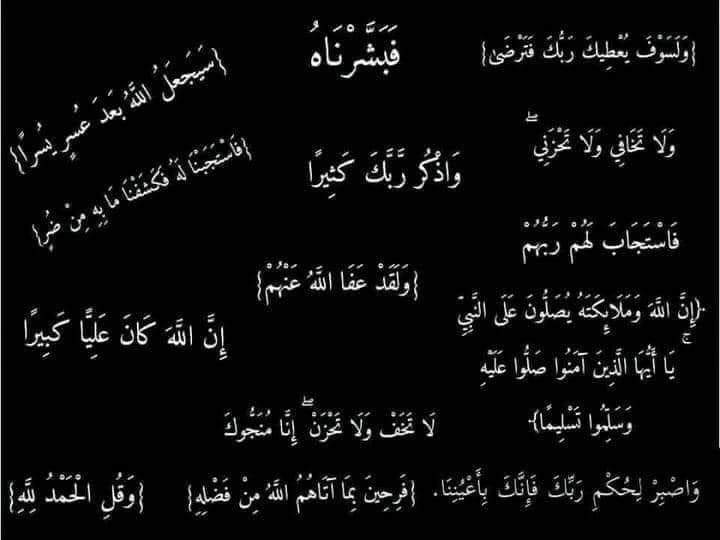 {وَلَسَوْفَ يُعْطِيكَ رَبُّكَ فَتَرْضَىٰ}
فَبَشَّرْنَاهُ
{سَيَجعَلُ اللَّهُ بَعدَ عُسرٍ يُسراً}
وَلَا تَخَافِي وَلَا تَحْزَنِي ۖ
وَاذْكُر رَّبَّكَ كَثِيرًا
{فَاسْتَجَبْنَا لَهُ فَكَشَفْنَا مَا بِهِ مِنْ ضُرٍ}
فَاسْتَجَابَ لَهُمْ رَبُّهُمْ
{وَلَقَدْ عَفَا اللَّهُ عَنْهُمْ}
{إِنَّ اللَّهَ وَمَلَائِكَتَهُ يُصَلُّونَ عَلَى النَّبِيِّ ۚ
يَا أَيُّهَا الَّذِينَ آمَنُوا صَلُّوا عَلَيْهِ
وَسَلِّمُوا تَسْلِيمًا}
إِنَّ اللَّهَ كَانَ عَلِيًّا كَبِيرًا
لَا تَخَفْ وَلَا تَحْزَنْ ۖ إِنَّا مُنَجُّوكَ
وَاصْبِرْ لِحُكْمِ رَبِّكَ فَإِنَّكَ بِأَعْيُنِنَا.
{فَرِحِينَ بِمَا آتَاهُمُ اللَّهُ مِنْ فَضْلِهِ}
{وَقُلِ الْحَمْدُ لِلَّهِ}